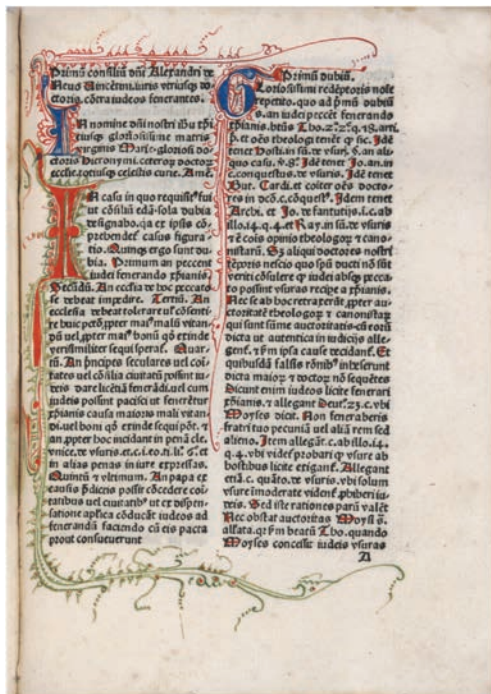 Primū consiliū dñi Alexandri de
Neuo Uincētini.iuris vtriusq; do
ctoris.cōtra iudeos fenerantes.
IN nomine dñi nostri ihū xp̄i
eiusq; gloriosissime matris
virginis Marie.gloriosi do
ctoris Hieronymi.ceterorq; doctoꝝ
ecclie.totiusq; celestis curie. Amē.
IN casu in quo requisit⁹ fui
ut cōsiliū edā.sola dubia
designabo.qa ex ipsis cō
prehendet casus figura
tio. Quinq; ergo sunt du
bia. Primum an peccent
iudei fenerando xp̄ianis.
Secūdū. An ecclesia de hoc peccato
se debeat impedire. Tertiū. An
ecclesia debeat tolerare ut cōsenti
re huic pctō.ꝓpter mai⁹ malū vitan
dū uel ꝓpter mai⁹ bonū qđ exinde
verisimiliter sequi speraf. Quar
tū. An p̄ncipes seculares uel coi
tates uel cōsilia ciuitatū possint iu
deis dare licētiā fenerādi.uel cum
iudeis possint pacisci ut fenerētur
xp̄ianis causa maioris mali vitan
di.uel boni qđ exinde sequi pōt. et
an ꝓpter hoc incidant in penā cle.
vnice.de vsuris.et.c.i.eo.ti.li.6.et
in alias penas in iure expressas.
Quintū et vltimum. An papa ex
causis p̄dictis possit cōcedere coi
tatibus uel ciuitatib⁹ ut ex dispen-
satione aplica cōducāt iudeos ad
fenerandū faciendo cū eis pacta
prout consueuerunt
Primū dubiū.
GLoriosissimi redēptoris nōie
repetito. quo ad p̄mū dubiū
s. an iudei peccēt fenerando
xp̄ianis. btūs Tho.2ª.2e.q.78.arti.
p̄. et oēs theologi tenēt q sic. Idē
tenet Hosti.in sū.de vsurꝭ.§.an ali-
quo casu.v.8º. Idē tenet Jo.an.in
c.conquestus.de vsuris. Idē tenet
But. Cardi.et cōiter oēs docto-
res in dco.c.cōquest⁹. Idem tenet
Archi. et Jo. de fantutijs.i.c.ab
illo.14.q.4.et Ray.in sū.de vsuris
et ē cōis opinio theologoꝝ et cano-
nistarū. Sꝫ aliqui doctores nostri
tēporis nescio quo spū ducti nō sūt
veriti cōsulere q iudei absq; pecca-
to possint vsuras recipe a xp̄ianis.
Nec se ab hoc retraxerūt ꝓpter au-
ctoritatē theologoꝝ et canonistaꝝ
qui sunt sūme auctoritatis-cū eorū
dicta ut autentica in iudicijs alle-
genf.et ꝑm ipsa cause decidanf. Et
quibusdā falsis rōnib⁹ inheserunt
dicta maioꝝ et doctoꝝ nō sequētes
Dicunt enim iudeos licite fenerari
xp̄ianis.et allegant Deut.23.c.vbi
Moyses dicit. Non feneraberis
fratri tuo pecuniā uel aliā rem sed
alieno. Item allegāt.c.ab illo.14.
q.4.vbi videf probari q vsure ab
hostibus licite exiganf. Allegant
etiā.c. quāto.de vsuris.vbi solum
vsure īmoderate videnf ꝓhiberi iu-
deis. Sed iste rationes parū valēt
Nec obstat auctoritas Moysi s̄.
allata.qꝛ ꝑm beatū Tho.quando
Moyses concessit iudeis vsuras
A